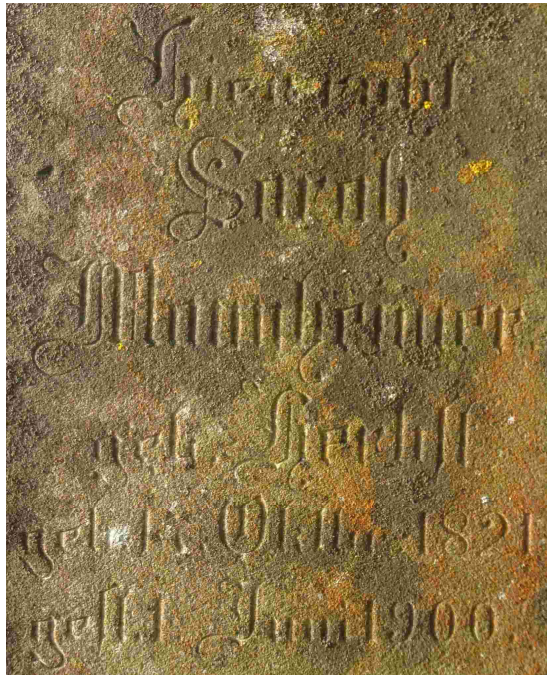 Hier ruht
Sarah
Mannheimer
geb. Herbst
geb. Oktbr. 1821
gest. 1 Juni 1900.